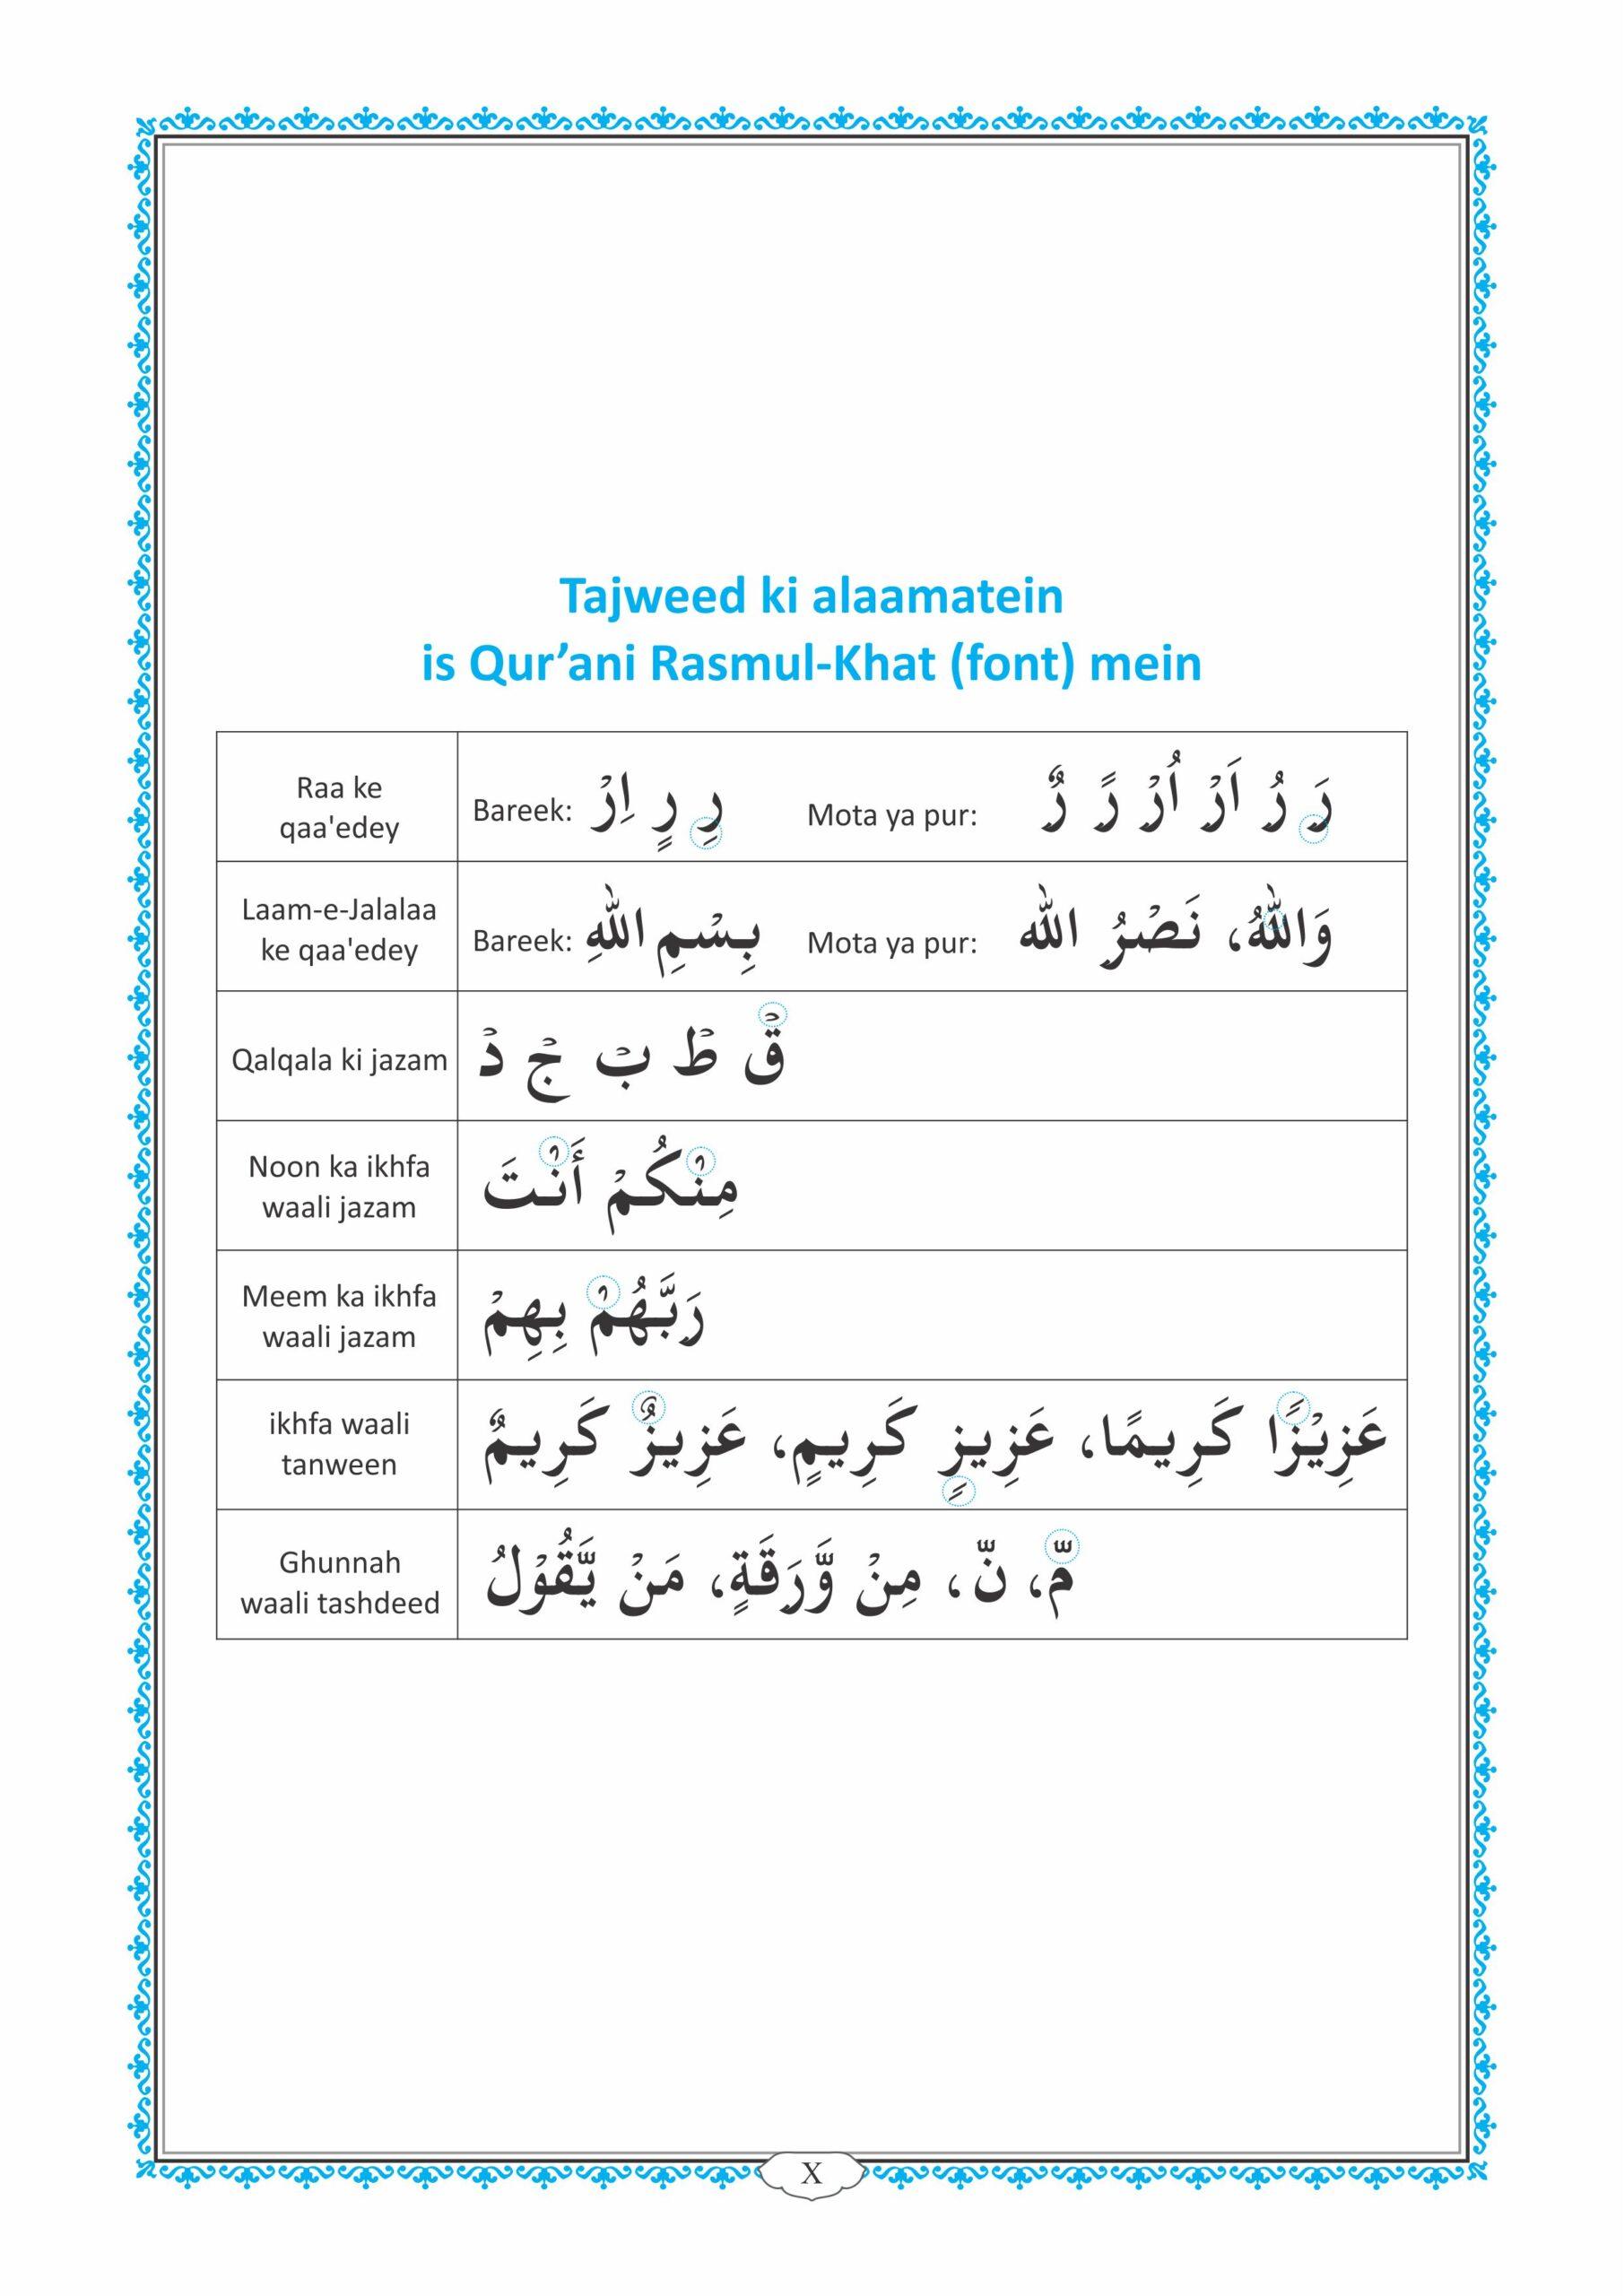 Tajweed ki alaamatein
is Qur’ani Rasmul-Khat (font) mein
Raa ke
qaa'edey
Bareek: رِ رٍ اِرْ Mota ya pur: رَ رُ اَرْ اُرْ رً رٌ
Laam-e-Jalalaa
ke qaa'edey
Bareek: بِسْمِ اللّٰهِ Mota ya pur: وَاللّٰهُ، نَصْرُ اللّٰه
Qalqala ki jazam
قْ طْ بْ جْ دْ
Noon ka ikhfa
waali jazam
مِنْكُمْ أَنْتَ
Meem ka ikhfa
waali jazam
رَبَّهُمْ بِهِمْ
ikhfa waali
tanween
عَزِيْزًا كَرِيمًا، عَزِيزٍ كَرِيمٍ، عَزِيزٌ كَرِيمٌ
Ghunnah
waali tashdeed
مّ، نّ، مِنْ وَّرَقَةٍ، مَنْ يَّقُوْلُ
X